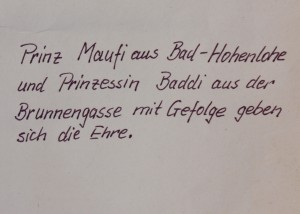 Prinz Maufi aus Bad-Hohenlohe
und Prinzessin Baddi aus der
Brunnengasse mit Gefolge geben
sich die Ehre.